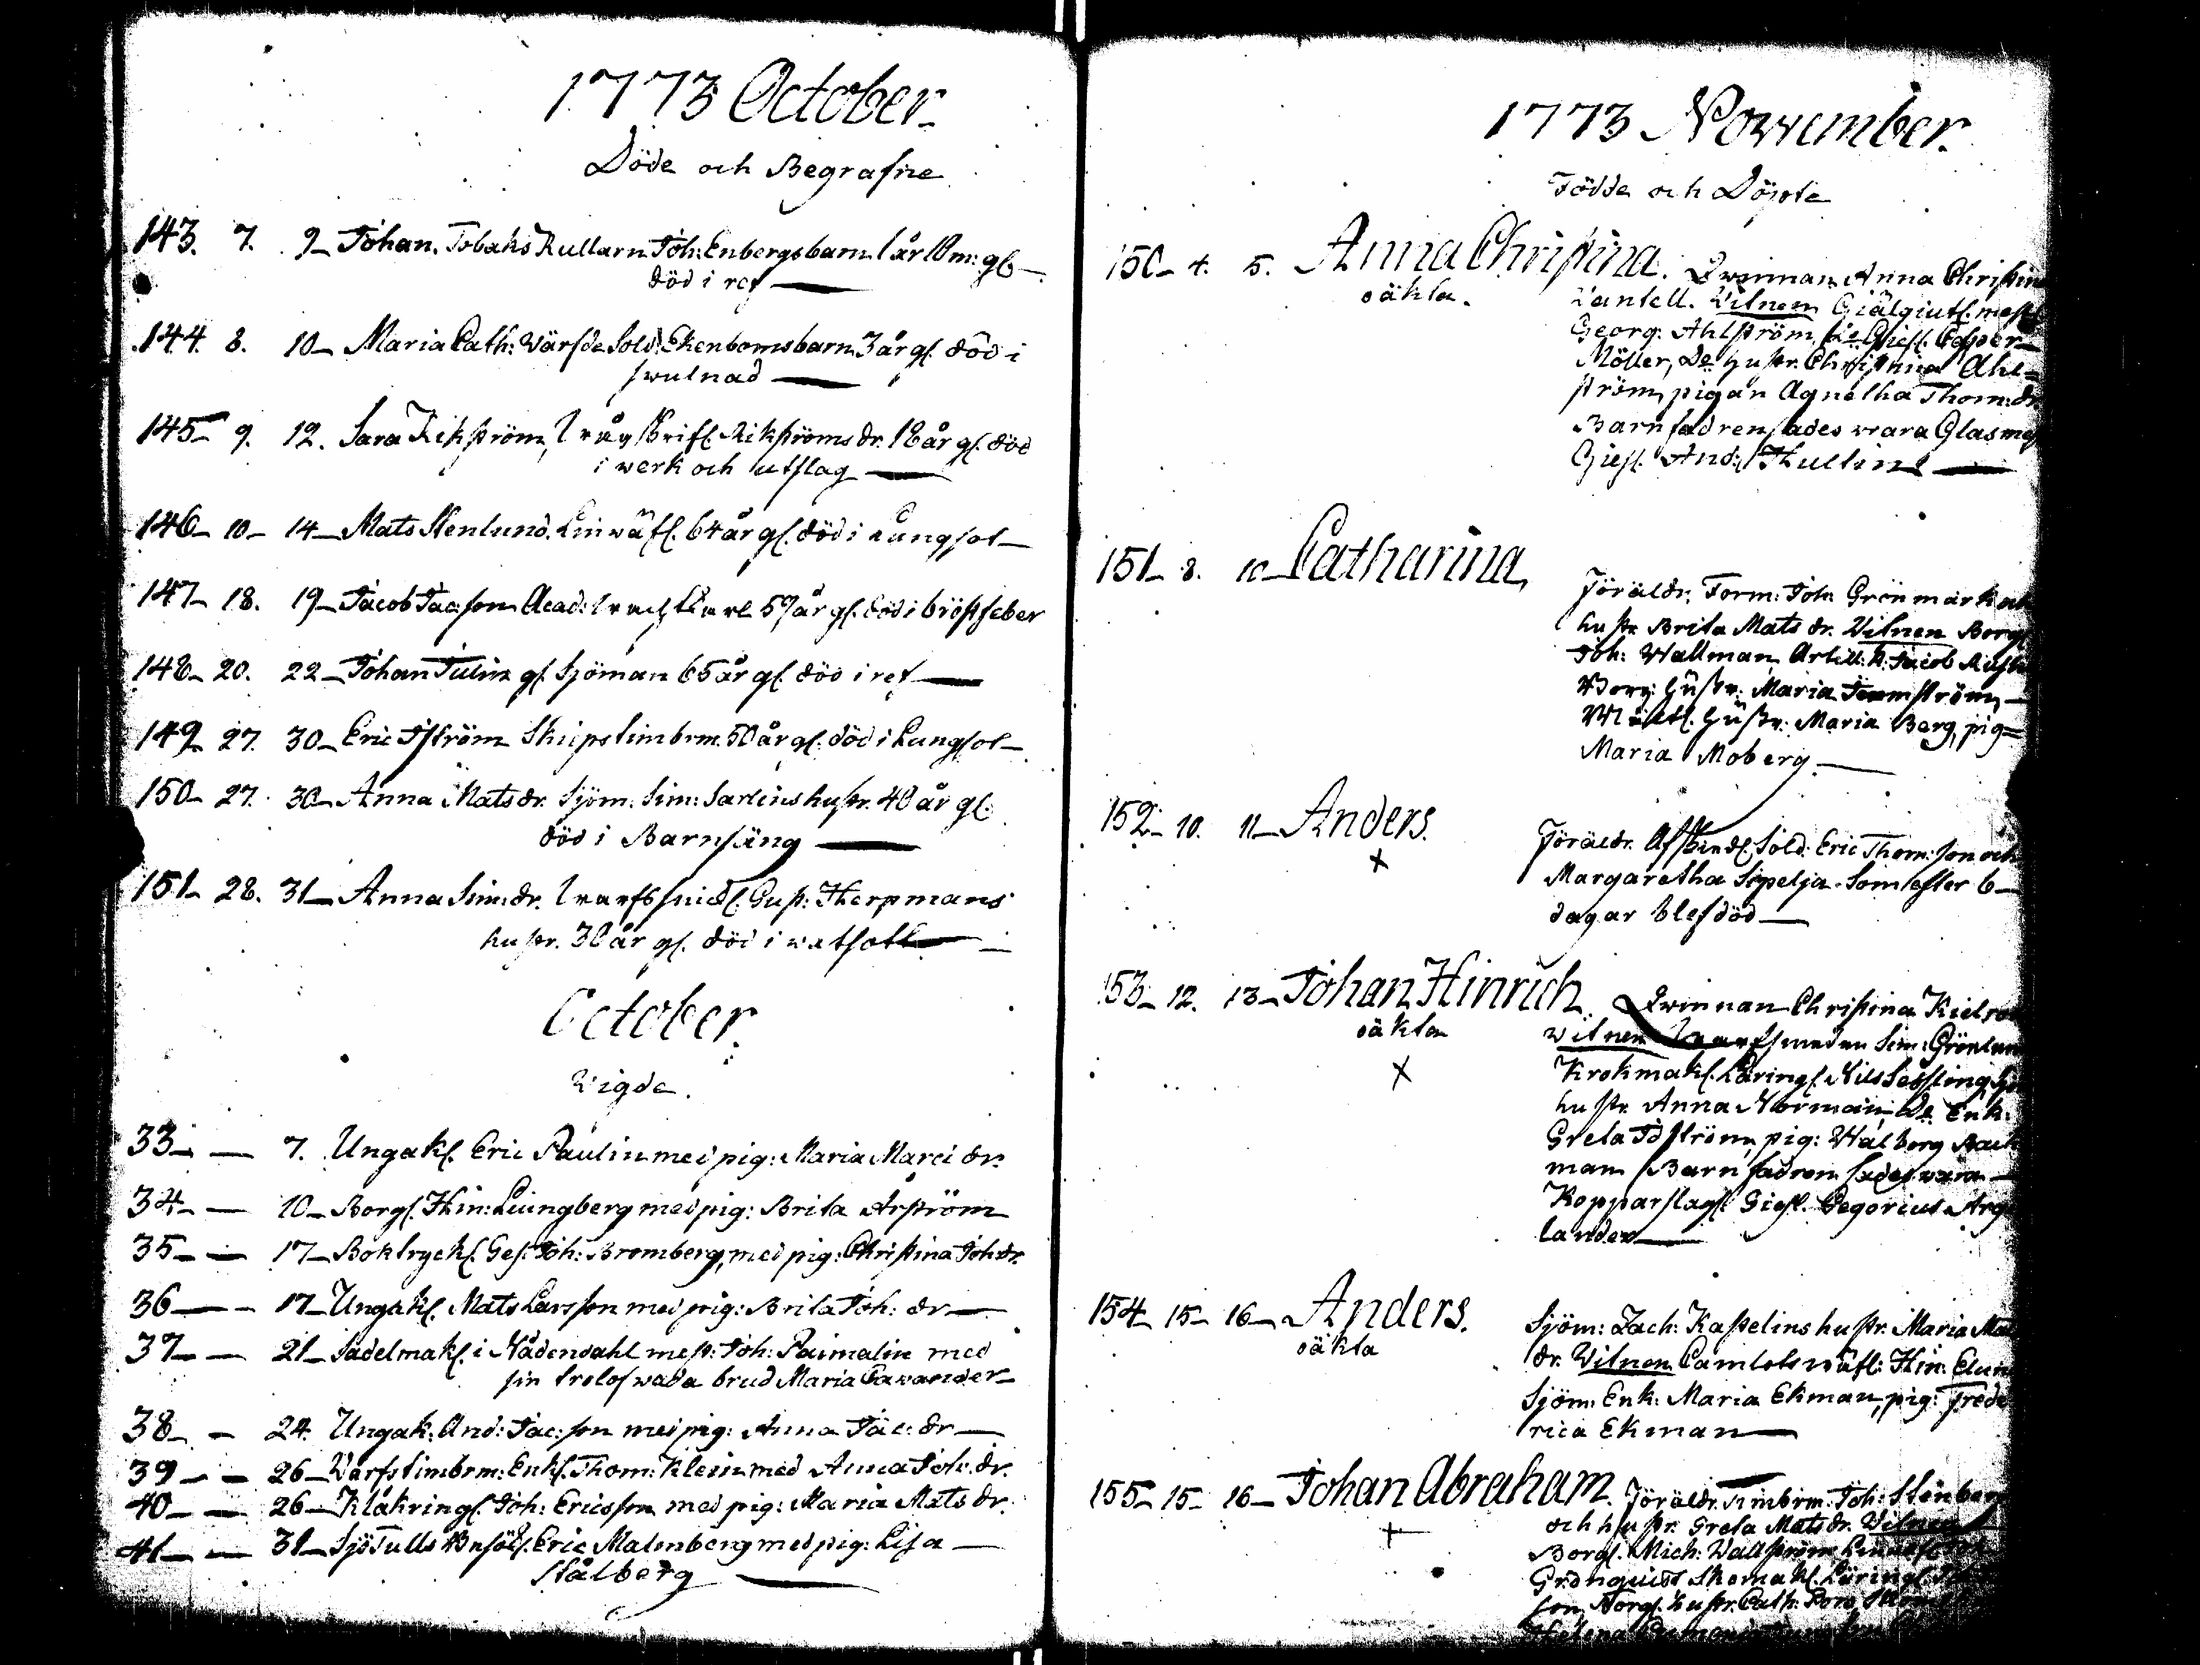 1773 October
Döde och Begrafne
143. 7. 9 Johan. Tobaks Rullarn Joh: Enbergs barn 1 år 10 m: gl
död i ref
144. 8. 10 Maria Cath: Wärfde Sold: Ekenboms barn 3 år gl. död i
swulnad
145 9. 12. Sara Rikström, Rikströms dr. 18 år gl. död
i werk och utslag
146 10 14 Mats Stenlund. Linwäf. 64 år gl. död i Lungsot
147 18. 19 Jacob Jacsson Acad: 57 år gl. död i bröstfeber
148 20. 22 Johan Julin gl. Sjöman 65 år gl. död i ref
149 27. 30 Eric Iström Skiepstimbrm. 50 år gl. död i Lungsot
150 27. 30 Anna Matsdr. Sjöm: Sim: Sarlins hustr. 40 år gl.
död i Barnsäng
151 28. 31 Anna Sim: dr. Gust: Herpmans
hustr. 30 år gl. död i watsott
October
Wigde.
33 7. Ungakl. Eric Paulin med pig: Maria Marci dr.
34 10 Borgl. Hin: Liungberg med pig: Brita Årström
35 17 Boktryckl. Ges. Joh: Bromberg, med pig: Christina Joh dr.
36 17 Ungakl. Mats Larsson med pig: Brita Joh: dr
37 21 Sadelmakl. i Nådendahl mest: Joh: Paimalin med
sin trolofwade brud Maria Tawander
38 24 Ungak: And: Jac: son med pig: Anna Jac: dr
39 26 Warfstimbrm: Enkl. Thom: Klein med Anna Joh. dr.
40 26 Klåkringl. Joh: Ericsson med pig: Maria Mats dr.
41 31 SjöTulls Eric Malmberg med pig: Lisa
Stålberg
1773 November.
Födde och Döpte
150 4. 5. Anna Christina. Qwinnan Anna Christin
oäkta. Wittnen Giälgiutl. mest
Georg: Ahlström, Giesl. Casper
Möller, De hustr. Christina Ahl=
ström, pigan Agnetha Thom: dr
Barnfadren sades wara Glasmes
Giesl. And: Thullin
151 8. 10 Catharina,
Föräldr. Form: Joh: Grönmark och
hustr. Brita Mats dr. Witnen Borgl
Joh: Wallman Artill: k: Jacob
Borg: hustr: Maria
hustr: Maria Berg, pig=
Maria Moberg.
152 10. 11 Anders.
Föräldr. Afskiedl. Sold: Eric Thom: son och
Margaretha Sipelja. Som efter 6
dagar blef död
153 12. 13 Johan Hinrich. Qwinnan Christina
oäkta Witnen Sim: Grönlun
Krokmakl. Läringl. Nils
hustr. Anna Norman De Enk:
Greta Idström, pig: Walborg Back
man Barnfadren sades wara
Kopparslagl: Giesl. Gegorius Arge
lander
154 15 16 Anders.
oäkta
Sjöm: Zach: Kastelins hustr. Maria Mat
dr. Witnen Camlotswäfl: Hin:
Sjöm: Enk: Maria Ekman, pig: Frede
rica Ekman
155 15 16 Johan Abraham. Föräldr. Timbrm: Joh: Stenberg
och hustr. Greta Mats dr. Witnen
Borgl. Mich: Wallström
Grönquist Skomakl. Läringl.
son Borgl. hustr. Cath:
Helena